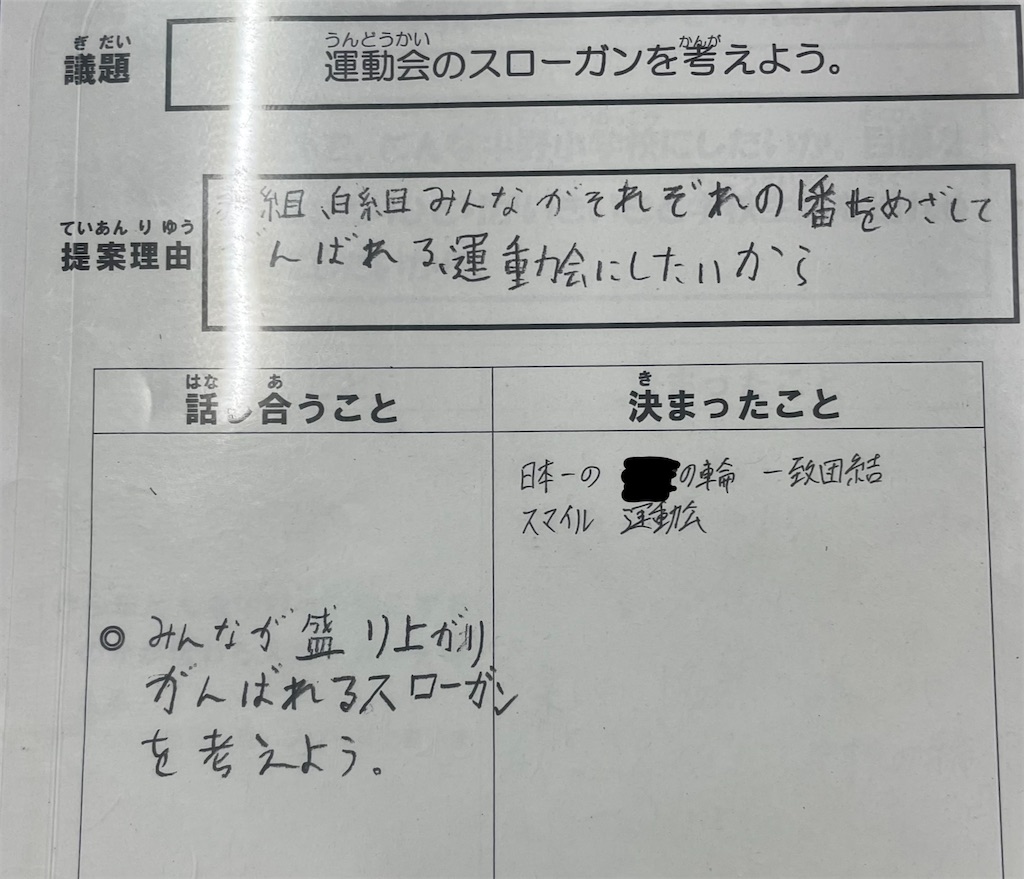 ぎだい
議題
うんどうかい かんが
運動会のスローガンを考えよう。
ていあんりゆう
提案理由
組、白組みんながそれぞれの1番をめざして
んばれる、運動会にしたいから
はな あ
話し合うこと
き
決まったこと
◎みんなが盛り上がり
がんばれるスローガン
を考えよう。
日本一の の輪 一致団結
スマイル 運動会